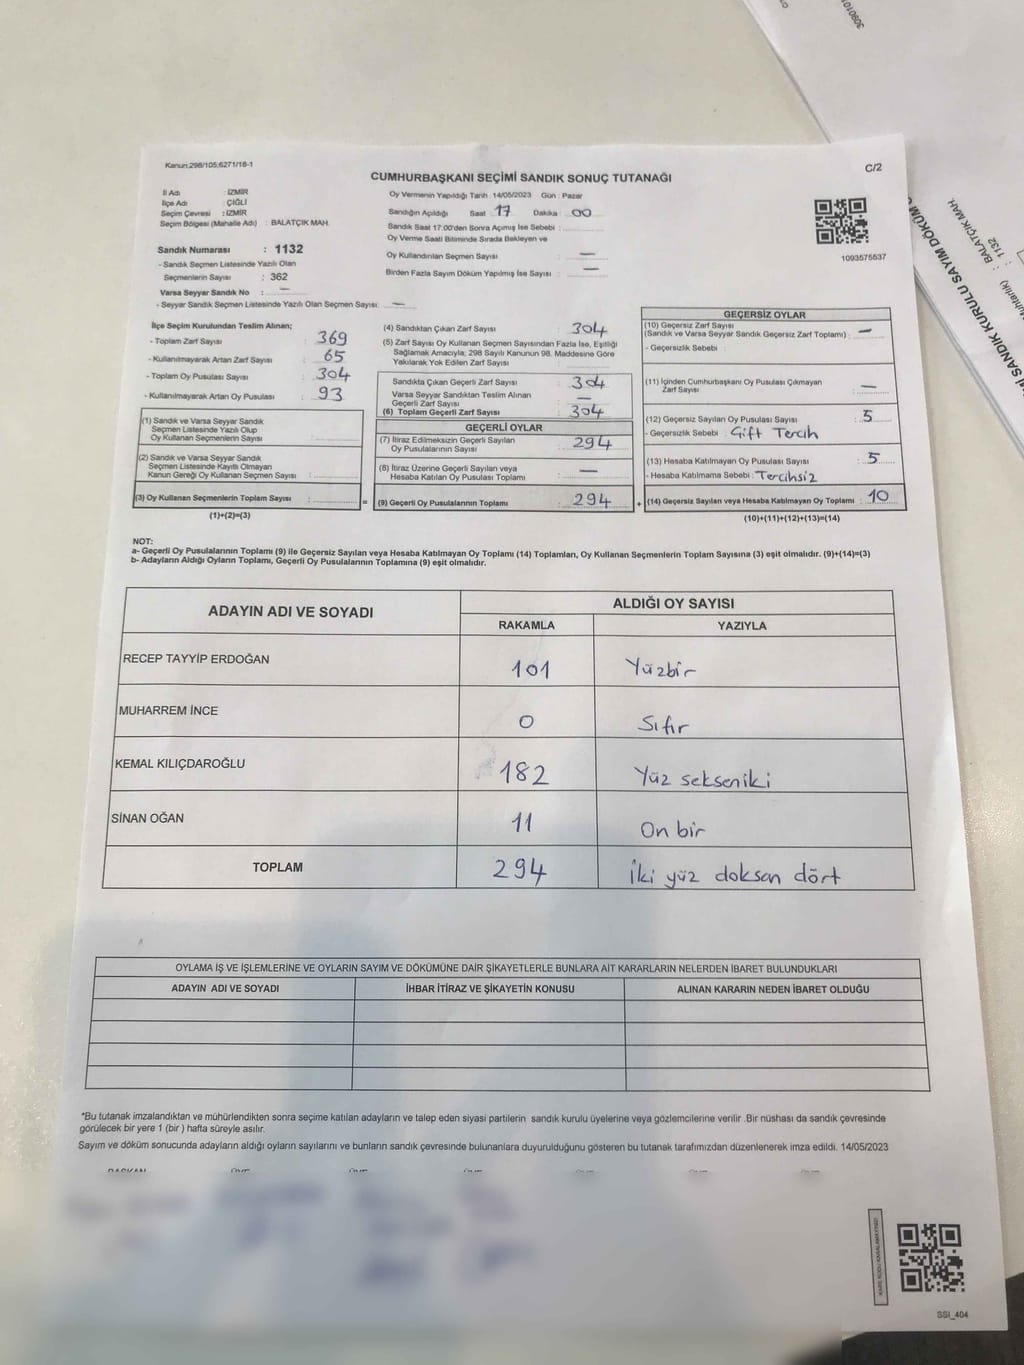 Kanun:298/105;6271/18-1
C/2
CUMHURBAŞKANI SEÇİMİ SANDIK SONUÇ TUTANAĞI
İl Adı : İZMİR
İlçe Adı : ÇİĞLİ
Seçim Çevresi : İZMİR
Seçim Bölgesi (Mahalle Adı) : BALATÇIK MAH.
Sandık Numarası : 1132
- Sandık Seçmen Listesinde Yazılı Olan
Seçmenlerin Sayısı : 362
Varsa Seyyar Sandık No : —
- Seyyar Sandık Seçmen Listesinde Yazılı Olan Seçmen Sayısı: —
Oy Vermenin Yapıldığı Tarih :14/05/2023 Gün : Pazar
Sandığın Açıldığı Saat 17 Dakika : 00
Sandık Saat 17:00'den Sonra Açımış İse Sebebi :
Oy Verme Saati Bitiminde Sırada Bekleyen ve
Oy Kullandırılan Seçmen Sayısı : —
Birden Fazla Sayım Döküm Yapılmış İse Sayısı : —
1093575537
İlçe Seçim Kurulundan Teslim Alınan;
- Toplam Zarf Sayısı : 369
- Kullanılmayarak Artan Zarf Sayısı : 65
- Toplam Oy Pusulası Sayısı : 304
- Kullanılmayarak Artan Oy Pusulası : 93
(1) Sandık ve Varsa Seyyar Sandık
Seçmen Listesinde Yazılı Olup
Oy Kullanan Seçmenlerin Sayısı :
(2) Sandık ve Varsa Seyyar Sandık
Seçmen Listesinde Kayıtlı Olmayan
Kanun Gereği Oy Kullanan Seçmen Sayısı :
(3) Oy Kullanan Seçmenlerin Toplam Sayısı :
(1)+(2)=(3)
(4) Sandıktan Çıkan Zarf Sayısı : 304
(5) Zarf Sayısı Oy Kullanan Seçmen Sayısından Fazla İse, Eşitliği
Sağlamak Amacıyla, 298 Sayılı Kanunun 98. Maddesine Göre
Yakılarak Yok Edilen Zarf Sayısı :
Sandıkta Çıkan Geçerli Zarf Sayısı : 304
Varsa Seyyar Sandıktan Teslim Alınan
Geçerli Zarf Sayısı : —
(6) Toplam Geçerli Zarf Sayısı : 304
GEÇERLİ OYLAR
(7) İtiraz Edilmeksizin Geçerli Sayılan
Oy Pusulalarının Sayısı : 294
(8) İtiraz Üzerine Geçerli Sayılan veya
Hesaba Katılan Oy Pusulası Toplamı : —
= (9) Geçerli Oy Pusulalarının Toplamı : 294
GEÇERSİZ OYLAR
(10) Geçersiz Zarf Sayısı
(Sandık ve Varsa Seyyar Sandık Geçersiz Zarf Toplamı) : —
- Geçersizlik Sebebi :
(11) İçinden Cumhurbaşkanı Oy Pusulası Çıkmayan
Zarf Sayısı : —
(12) Geçersiz Sayılan Oy Pusulası Sayısı : 5
- Geçersizlik Sebebi : Çift Tercih
(13) Hesaba Katılmayan Oy Pusulası Sayısı : 5
- Hesaba Katılmama Sebebi : Tercihsiz
+ (14) Geçersiz Sayılan veya Hesaba Katılmayan Oy Toplamı : 10
(10)+(11)+(12)+(13)=(14)
NOT:
a- Geçerli Oy Pusulalarının Toplamı (9) ile Geçersiz Sayılan veya Hesaba Katılmayan Oy Toplamı (14) Toplamları, Oy Kullanan Seçmenlerin Toplam Sayısına (3) eşit olmalıdır. (9)+(14)=(3)
b- Adayların Aldığı Oyların Toplamı, Geçerli Oy Pusulalarının Toplamına (9) eşit olmalıdır.
ADAYIN ADI VE SOYADI ALDIĞI OY SAYISI
RAKAMLA YAZIYLA
RECEP TAYYİP ERDOĞAN 101 Yüzbir
MUHARREM İNCE 0 Sıfır
KEMAL KILIÇDAROĞLU 182 Yüz sekseniki
SİNAN OĞAN 11 On bir
TOPLAM 294 İki yüz doksan dört
OYLAMA İŞ VE İŞLEMLERİNE VE OYLARIN SAYIM VE DÖKÜMÜNE DAİR ŞİKAYETLERLE BUNLARA AİT KARARLARIN NELERDEN İBARET BULUNDUKLARI
ADAYIN ADI VE SOYADI İHBAR İTİRAZ VE ŞİKAYETİN KONUSU ALINAN KARARIN NEDEN İBARET OLDUĞU
*Bu tutanak imzalandıktan ve mühürlendikten sonra seçime katılan adayların ve talep eden siyasi partilerin sandık kurulu üyelerine veya gözlemcilerine verilir .Bir nüshası da sandık çevresinde
görülecek bir yere 1 (bir ) hafta süreyle asılır.
Sayım ve döküm sonucunda adayların aldığı oyların sayılarını ve bunların sandık çevresinde bulunanlara duyurulduğunu gösteren bu tutanak tarafımızdan düzenlenerek imza edildi. 14/05/2023
SSİ_404
SANDIK KURULU SAYIM DÖKÜM
: BALATÇIK MAH.
: 1132